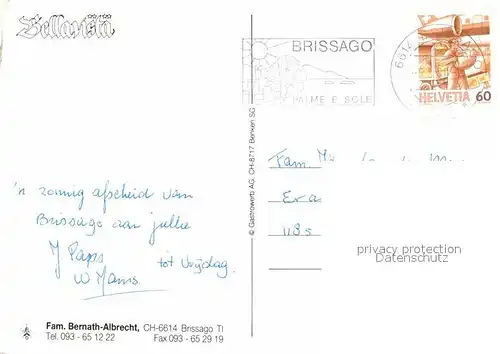 Bellavista
BRISSAGO
PALME E SOLE
6614
HELVETIA 60
© Gastrowerb AG, CH-8717 Benken SG
Fam.
'n zonnig afscheid van
Brissago aan jullie
Paps
Mams
tot Vrijdag.
118s
privacy protection
Datenschutz
Fam. Bernath-Albrecht, CH-6614 Brissago TI
Tel. 093 - 65 12 22 Fax 093 - 65 29 19